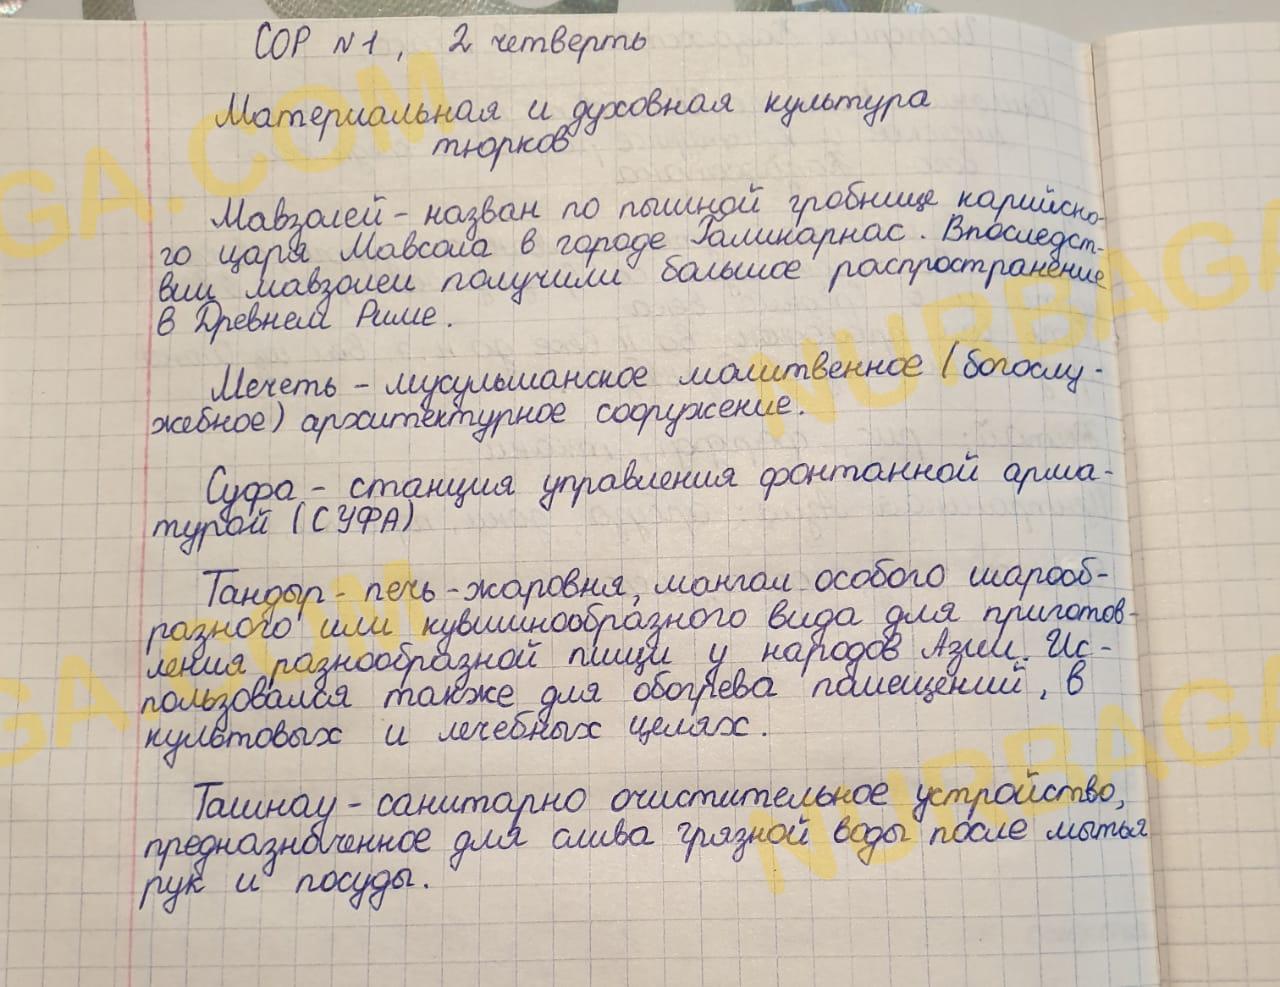 СОР №1, 2 четверть
Материальная и духовная культура
тюрков
Мавзолей - назван по пышной гробнице карийско-
го царя Мавсола в городе Галикарнас. Впоследст-
вии мавзолеи получили большое распространение
в Древнем Риме.
Мечеть - мусульманское молитвенное (богослу-
жебное) архитектурное сооружение.
Суфа - станция управления фонтанной арма-
турой (СУФА)
Тандыр - печь - жаровня, мангал особого шарооб-
разного или кувшинообразного вида для приготов-
ления разнообразной пищи у народов Азии. Ис-
пользовался также для обогрева помещений, в
культовых и лечебных целях.
Ташнау - санитарно очистительное устройство,
предназначенное для слива грязной воды после мытья
рук и посуды.
GA.COM
NURBAGA
GA.COM
NURBAGA